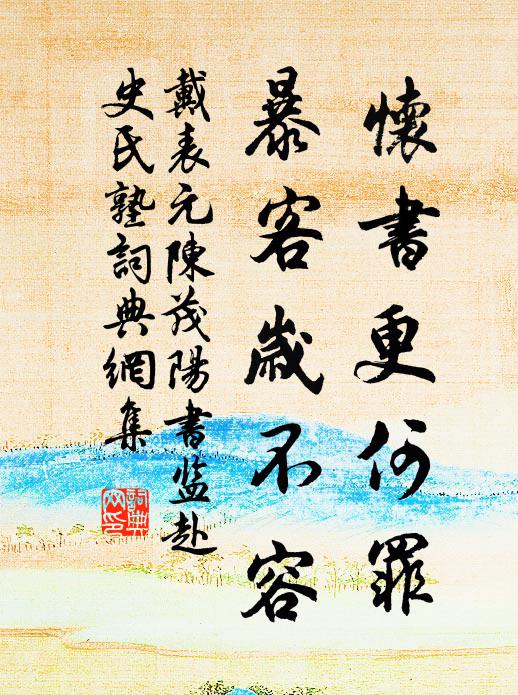 懷書更何罪
暴客歲不容
戴表元陳茂陽書監赴
史氏塾詞典網集
詞典
网印